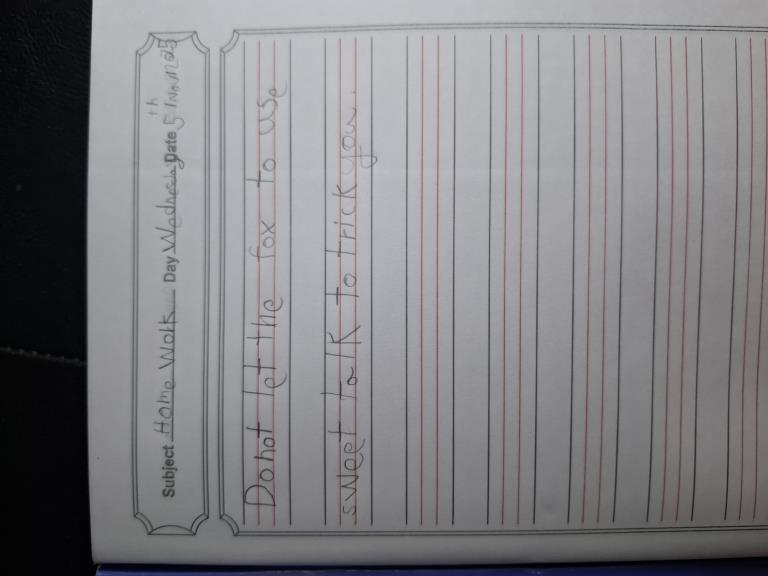 Subject Home Work Day Wednesday Date 5th Nov 25
Do not let the fox to use
sweet talk to trick you.